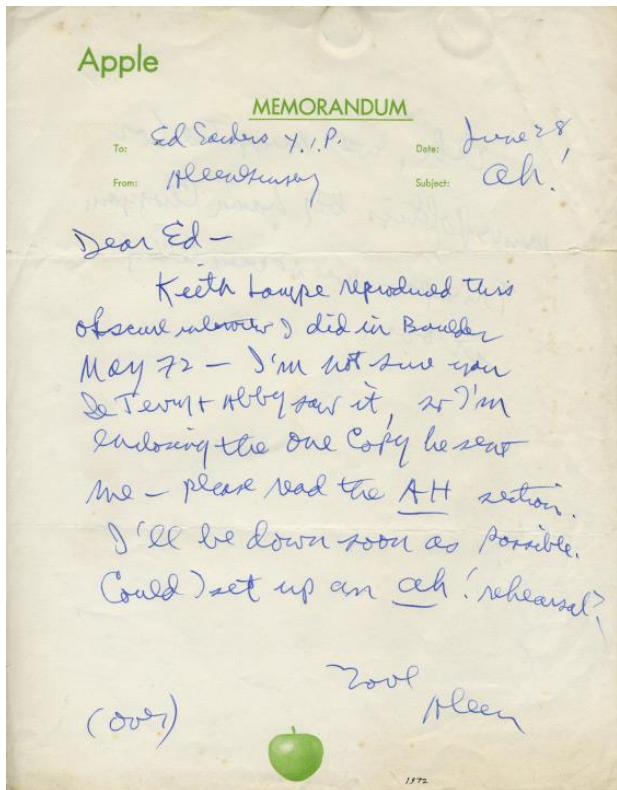 Apple
MEMORANDUM
To: Ed Sanders Y.I.P. Date: June 28,
From: Allen Ginsberg Subject: Ah!
Dear Ed —
Keith Lampe reproduced this
obscure interview I did in Boulder
May 72 — I'm not sure you
& Jerry + Abby saw it, so I'm
enclosing the one copy he sent
me — please read the AH section.
I'll be down soon as possible.
Could I set up an ah! rehearsal?
Love
Allen
(over)
1972